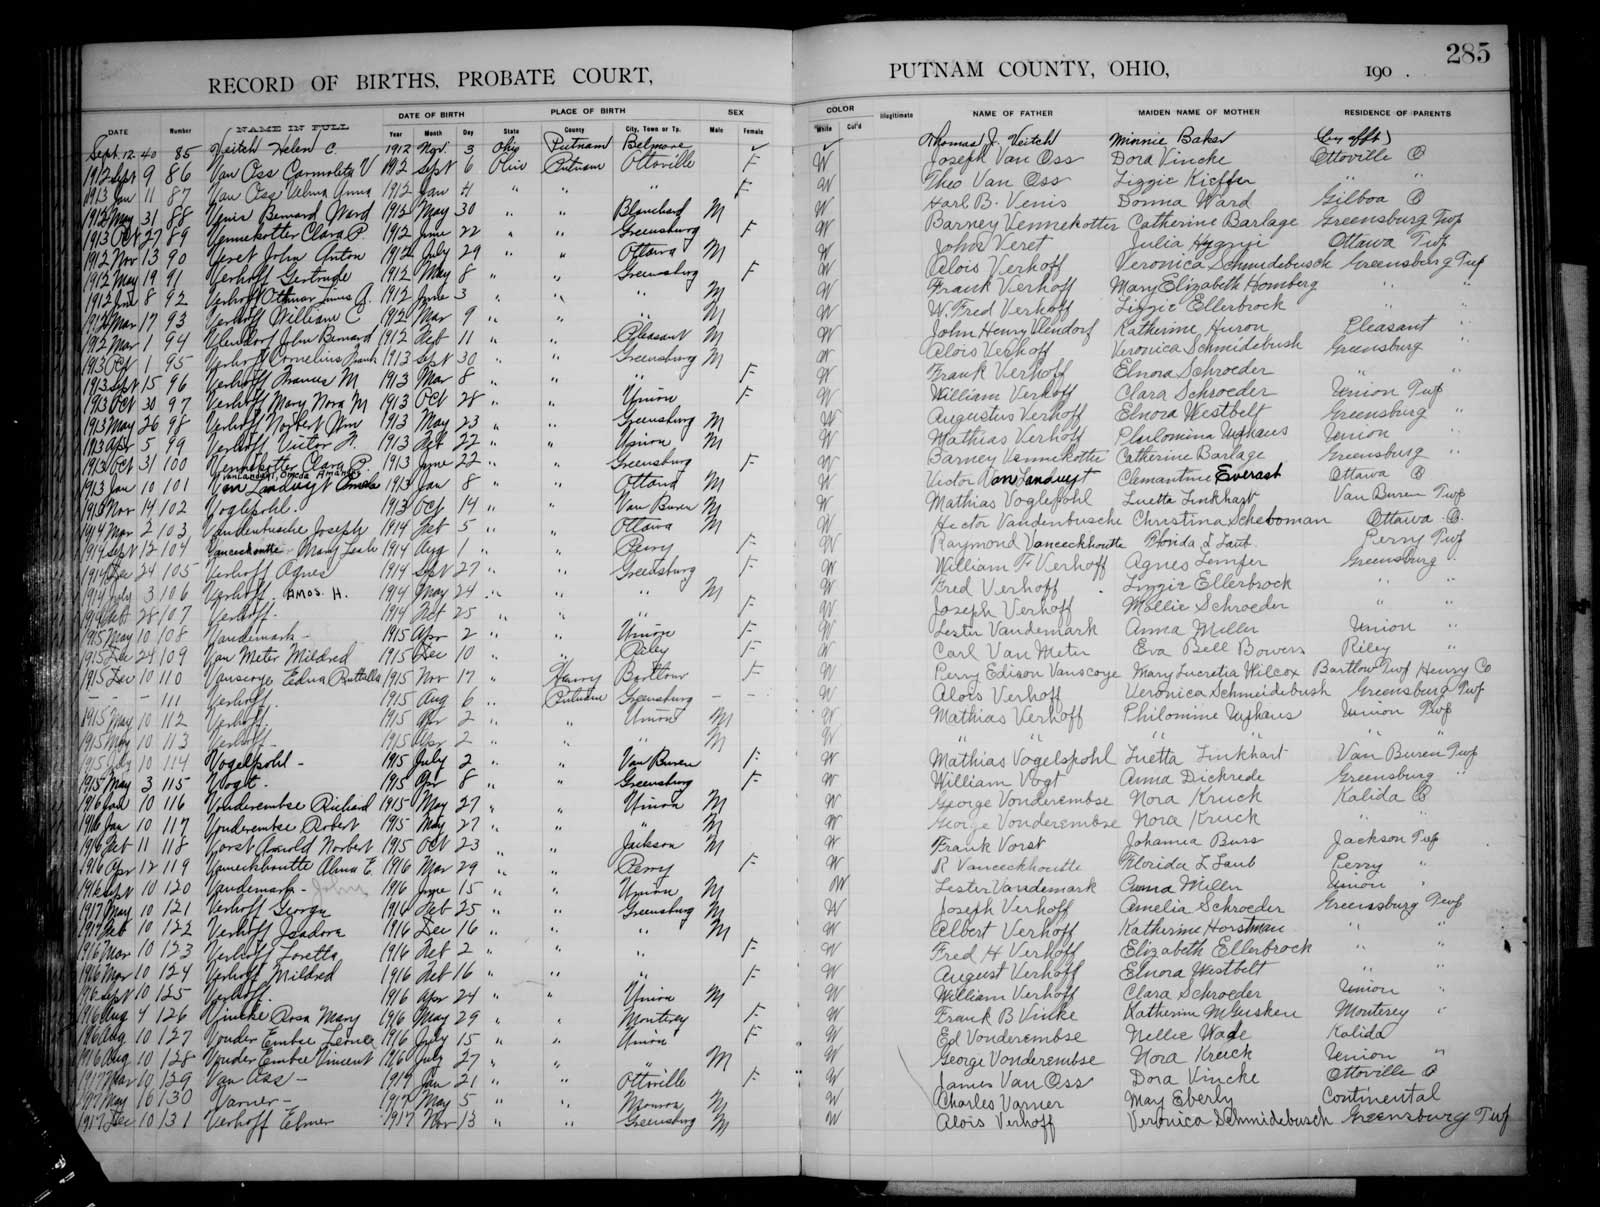 285
RECORD OF BIRTHS, PROBATE COURT, PUTNAM COUNTY, OHIO, 190 .
DATE Number NAME IN FULL DATE OF BIRTH Year Month Day PLACE OF BIRTH State County City, Town or Tp. SEX Male Female COLOR White Col'd Illegitimate NAME OF FATHER MAIDEN NAME OF MOTHER RESIDENCE OF PARENTS
Sept. 12-40 85 Veitch Helen C. 1912 Nov. 3 Ohio Putnam Belmore ✓ ✓ Thomas J. Veitch Minnie Baker
1912 Sept 9 86 Van Oss Carmolita V 1912 Sept 6 Ohio Putnam Ottoville F W Joseph Van Oss Dora Vincke Ottoville O
1913 Jan 11 87 Van Oss Velma Anna 1912 Jan 4 " " " F W Theo Van Oss Lizzie Kieffer " "
1912 May 31 88 Venis Bernard Ward 1912 May 30 " " Blanchard M W Harl B. Venis Donna Ward Gilboa O
1913 Oct 27 89 Vennekotter Clara P. 1912 June 22 " " Greensburg F W Barney Vennekotter Catherine Barlage Greensburg Twp
1912 Nov 13 90 Veret John Anton 1912 July 29 " " Ottawa M W John Veret Julia Ottawa Twp
1912 May 19 91 Verhoff Gertrude 1912 May 8 " " Greensburg F W Alois Verhoff Veronica Schmidebusch Greensburg Twp
1912 June 8 92 Verhoff Othmar Linus A. 1912 June 3 " " " M W Frank Verhoff Mary Elizabeth Homberg " "
1912 Mar 17 93 Verhoff William C 1912 Mar 9 " " " M W W. Fred Verhoff Lizzie Ellerbrock " "
1912 Mar 1 94 Vlendorf John Bernard 1912 Feb 11 " " Pleasant M W John Henry Vlendorf Katherine Huron Pleasant "
1913 Oct 1 95 Verhoff Cornelius Frank 1913 Sept 30 " " Greensburg M W Alois Verhoff Veronica Schmidebush Greensburg "
1913 Sept 15 96 Verhoff Frances M 1913 Mar 8 " " " F W Frank Verhoff Elnora Schroeder " "
1913 Oct 30 97 Verhoff Mary Nora M 1913 Oct 28 " " Union F W William Verhoff Clara Schroeder Union Twp
1913 May 26 98 Verhoff Norbert Wm 1913 May 23 " " Greensburg M W Augustus Verhoff Elnora Westbelt Greensburg "
1913 Apr 5 99 Verhoff Victor J. 1913 Feb 22 " " Union M W Mathias Verhoff Philomina Union "
1913 Oct 31 100 Vennekotter Clara P. 1913 June 22 " " Greensburg F W Barney Vennekotte Catherine Barlage Greensburg "
VanLanduyt, Omeda Amandus
1913 Jan 10 101 Van Landuyt 1913 Jan 8 " " Ottawa M W Victor Van Landuyt Clemantine Everast Ottawa O
1913 Nov 19 102 Voglepohl. 1913 Oct 14 " " Van Buren M W Mathias Voglepohl Luetta Linkhart Van Buren Twp
1914 Mar 2 103 Vandenbusche Joseph 1914 Feb 5 " " Ottawa M W Hector Vandenbusche Christina Scheboman Ottawa O.
1914 Sept 12 104 Vanceckoutte Mary Leah 1914 Aug 1 " " Perry F W Raymond Vanceckhoutte Florida L Laut Perry Twp
1914 Dec 24 105 Verhoff Agnes 1914 Sept 27 " " Greensburg F W William F Verhoff Agnes Lemfer Greensburg "
1914 July 3 106 Verhoff. AMOS. H. 1914 May 24 " " " M W Fred Verhoff Lizzie Ellerbrock " "
28 107 Verhoff. 1914 Oct 25 " " " F W Joseph Verhoff Mollie Schroeder " "
1915 May 10 108 Vandemark - 1915 Apr 2 " " Union F W Lester Vandemark Anna Miller Union "
1915 Dec 24 109 Van Meter Mildred 1915 Dec 10 " " Riley F W Carl Van Meter Eva Bell Bowers Riley "
1915 Dec 10 110 Vanscoye Edna 1915 Nov 17 " Henry Bartlow F W Perry Edison Vanscoye Mary Lucretia Wilcox Bartlow Twp Henry Co
- - - 111 Verhoff. 1915 Aug 6 " Putnam Greensburg - - W Alois Verhoff Veronica Schmeidebush Greensburg Twp
1915 May 10 112 Verhoff. 1915 Apr 2 " " Union M W Mathias Verhoff Philomine Union Twp
1915 May 10 113 Verhoff - 1915 Apr 2 " " " M W " " " " " "
1915 July 10 114 Vogelpohl - 1915 July 2 " " Van Buren F W Mathias Vogelspohl Luetta Linkhart Van Buren Twp
1915 May 3 115 Vogt. 1915 Apr 8 " " Greensburg F W William Vogt Anna Dickrede Greensburg "
1916 Jan 10 116 Vonderembse Richard 1915 May 27 " " Union M W George Vonderembse Nora Kruck Kalida O
1916 Jan 10 117 Vonderembse Robert 1915 May 27 " " " M W George Vonderembse Nora Kruck " "
1916 Feb 11 118 Vorst Arnold Norbert 1915 Oct 23 " " Jackson M W Frank Vorst Johanna Buss Jackson Twp
1916 Apr 12 119 Vaneeckhoutte Alma E. 1916 Mar 29 " " Perry F W R Vaneeckhoutte Florida L Laub Perry "
1916 Sept 10 120 Vandemark - John 1916 June 15 " " Union M W Lester Vandemark Anna Miller Union "
1917 May 10 121 Verhoff George 1916 Feb 25 " " Greensburg M W Joseph Verhoff Amelia Schroeder Greensburg Twp
1917 Feb 10 122 Verhoff Isadora 1916 Dec 16 " " " M W Albert Verhoff Katherine Horstman " "
1916 Mar 10 123 Verhoff Loretta 1916 Feb 2 " " " F W Fred H Verhoff Elizabeth Ellerbrock " "
1916 Mar 10 124 Verhoff Mildred 1916 Feb 16 " " " F W August Verhoff Elnora Westbelt " "
1916 Sept 10 125 Verhoff. 1916 Apr 24 " " Union M W William Verhoff Clara Schroeder Union "
1916 Aug 4 126 Vincke Rosa Mary 1916 May 29 " " Monterey F W Frank B Vinke Katherine McGusken Monterey "
1916 Aug 10 127 Vonder Embse Lerna 1916 July 15 " " Union F W Ed Vonderembse Nellie Wade Kalida
1916 Aug 10 128 Vonder Embse Vincent 1916 July 27 " " " M W George Vonderembse Nora Kruck Union "
1917 Mar 10 129 Van Oss - 1917 Jan 21 " " Ottoville F W James Van Oss Dora Vincke Ottoville O
1917 May 16 130 Varner - 1917 May 5 " " Monroe M W Charles Varner May Eberly Continental
1917 Dec 10 131 Verhoff Elmer 1917 Nov 13 " " Greensburg M W Alois Verhoff Veronica Schmidebusch Greensburg Twp